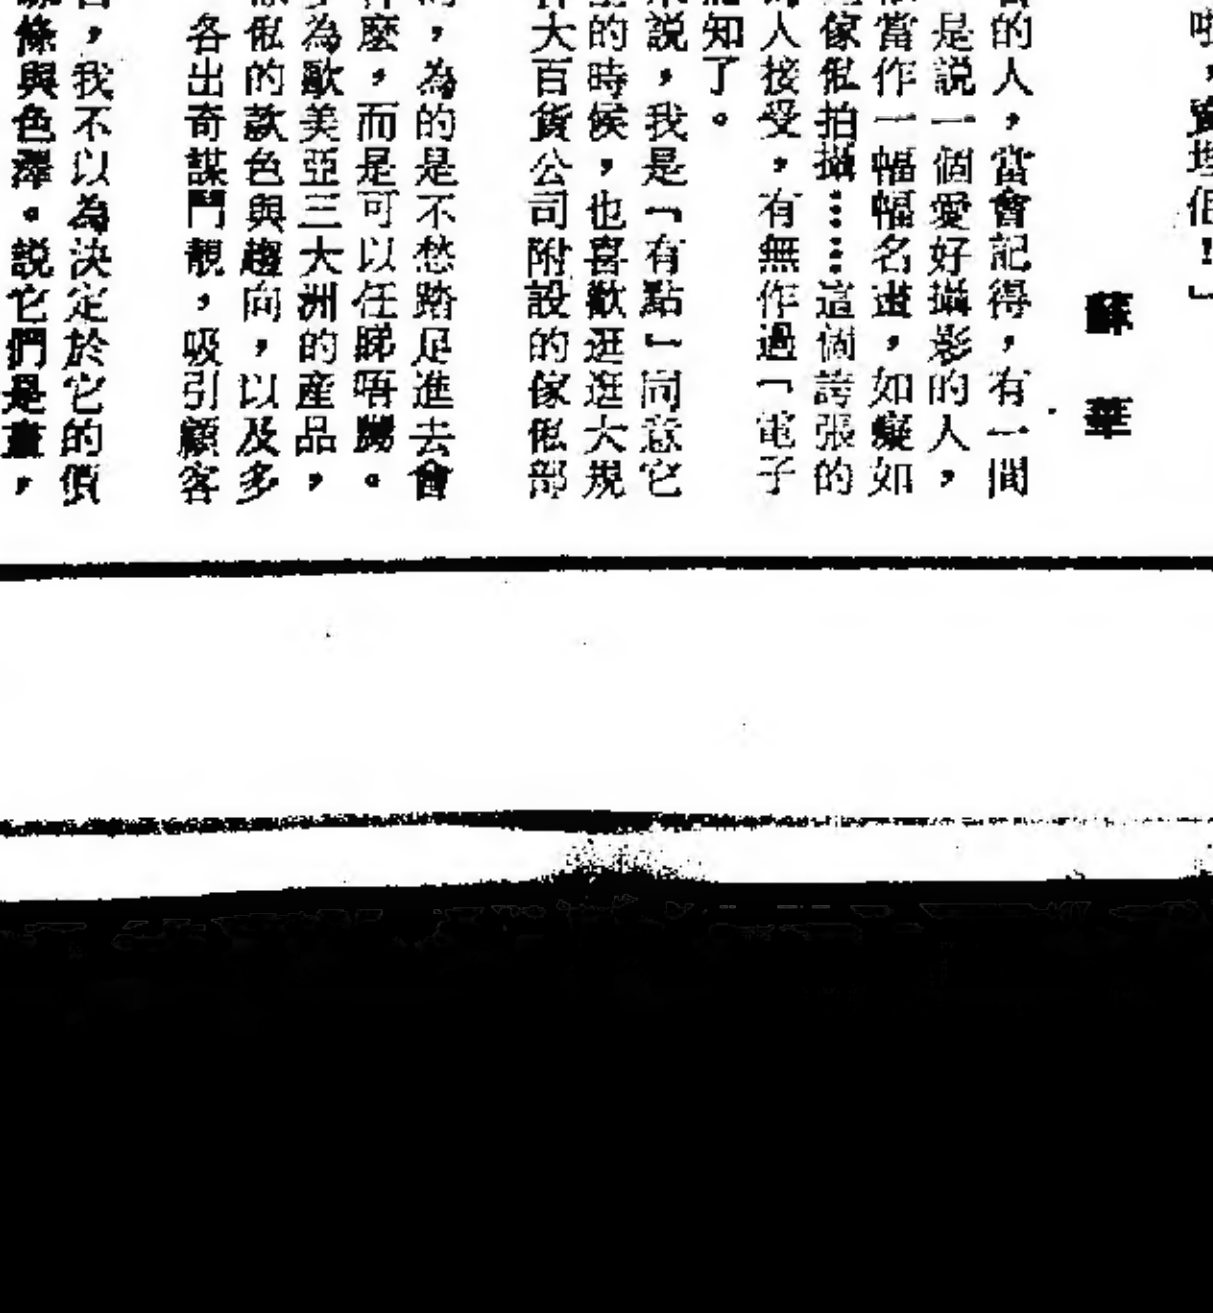 啦，實埋佢！」
蘇華
的人，當會記得，有一間
是説一個愛好攝影的人，
當作一幅幅名畫，如癡如
傢俬拍攝……這個誇張的
人接受，有無作過「電子
知了。
説，我是「有點」同意它
的時候，也喜歡逛逛大規
大百貨公司附設的傢俬部
，為的是不愁踏足進去會
麼，而是可以任睇唔嬲。
為歐美亞三大洲的産品，
俬的款色與趨向，以及多
各出奇謀鬥靚，吸引顧客
，我不以為決定於它的價
條與色澤。説它們是畫，